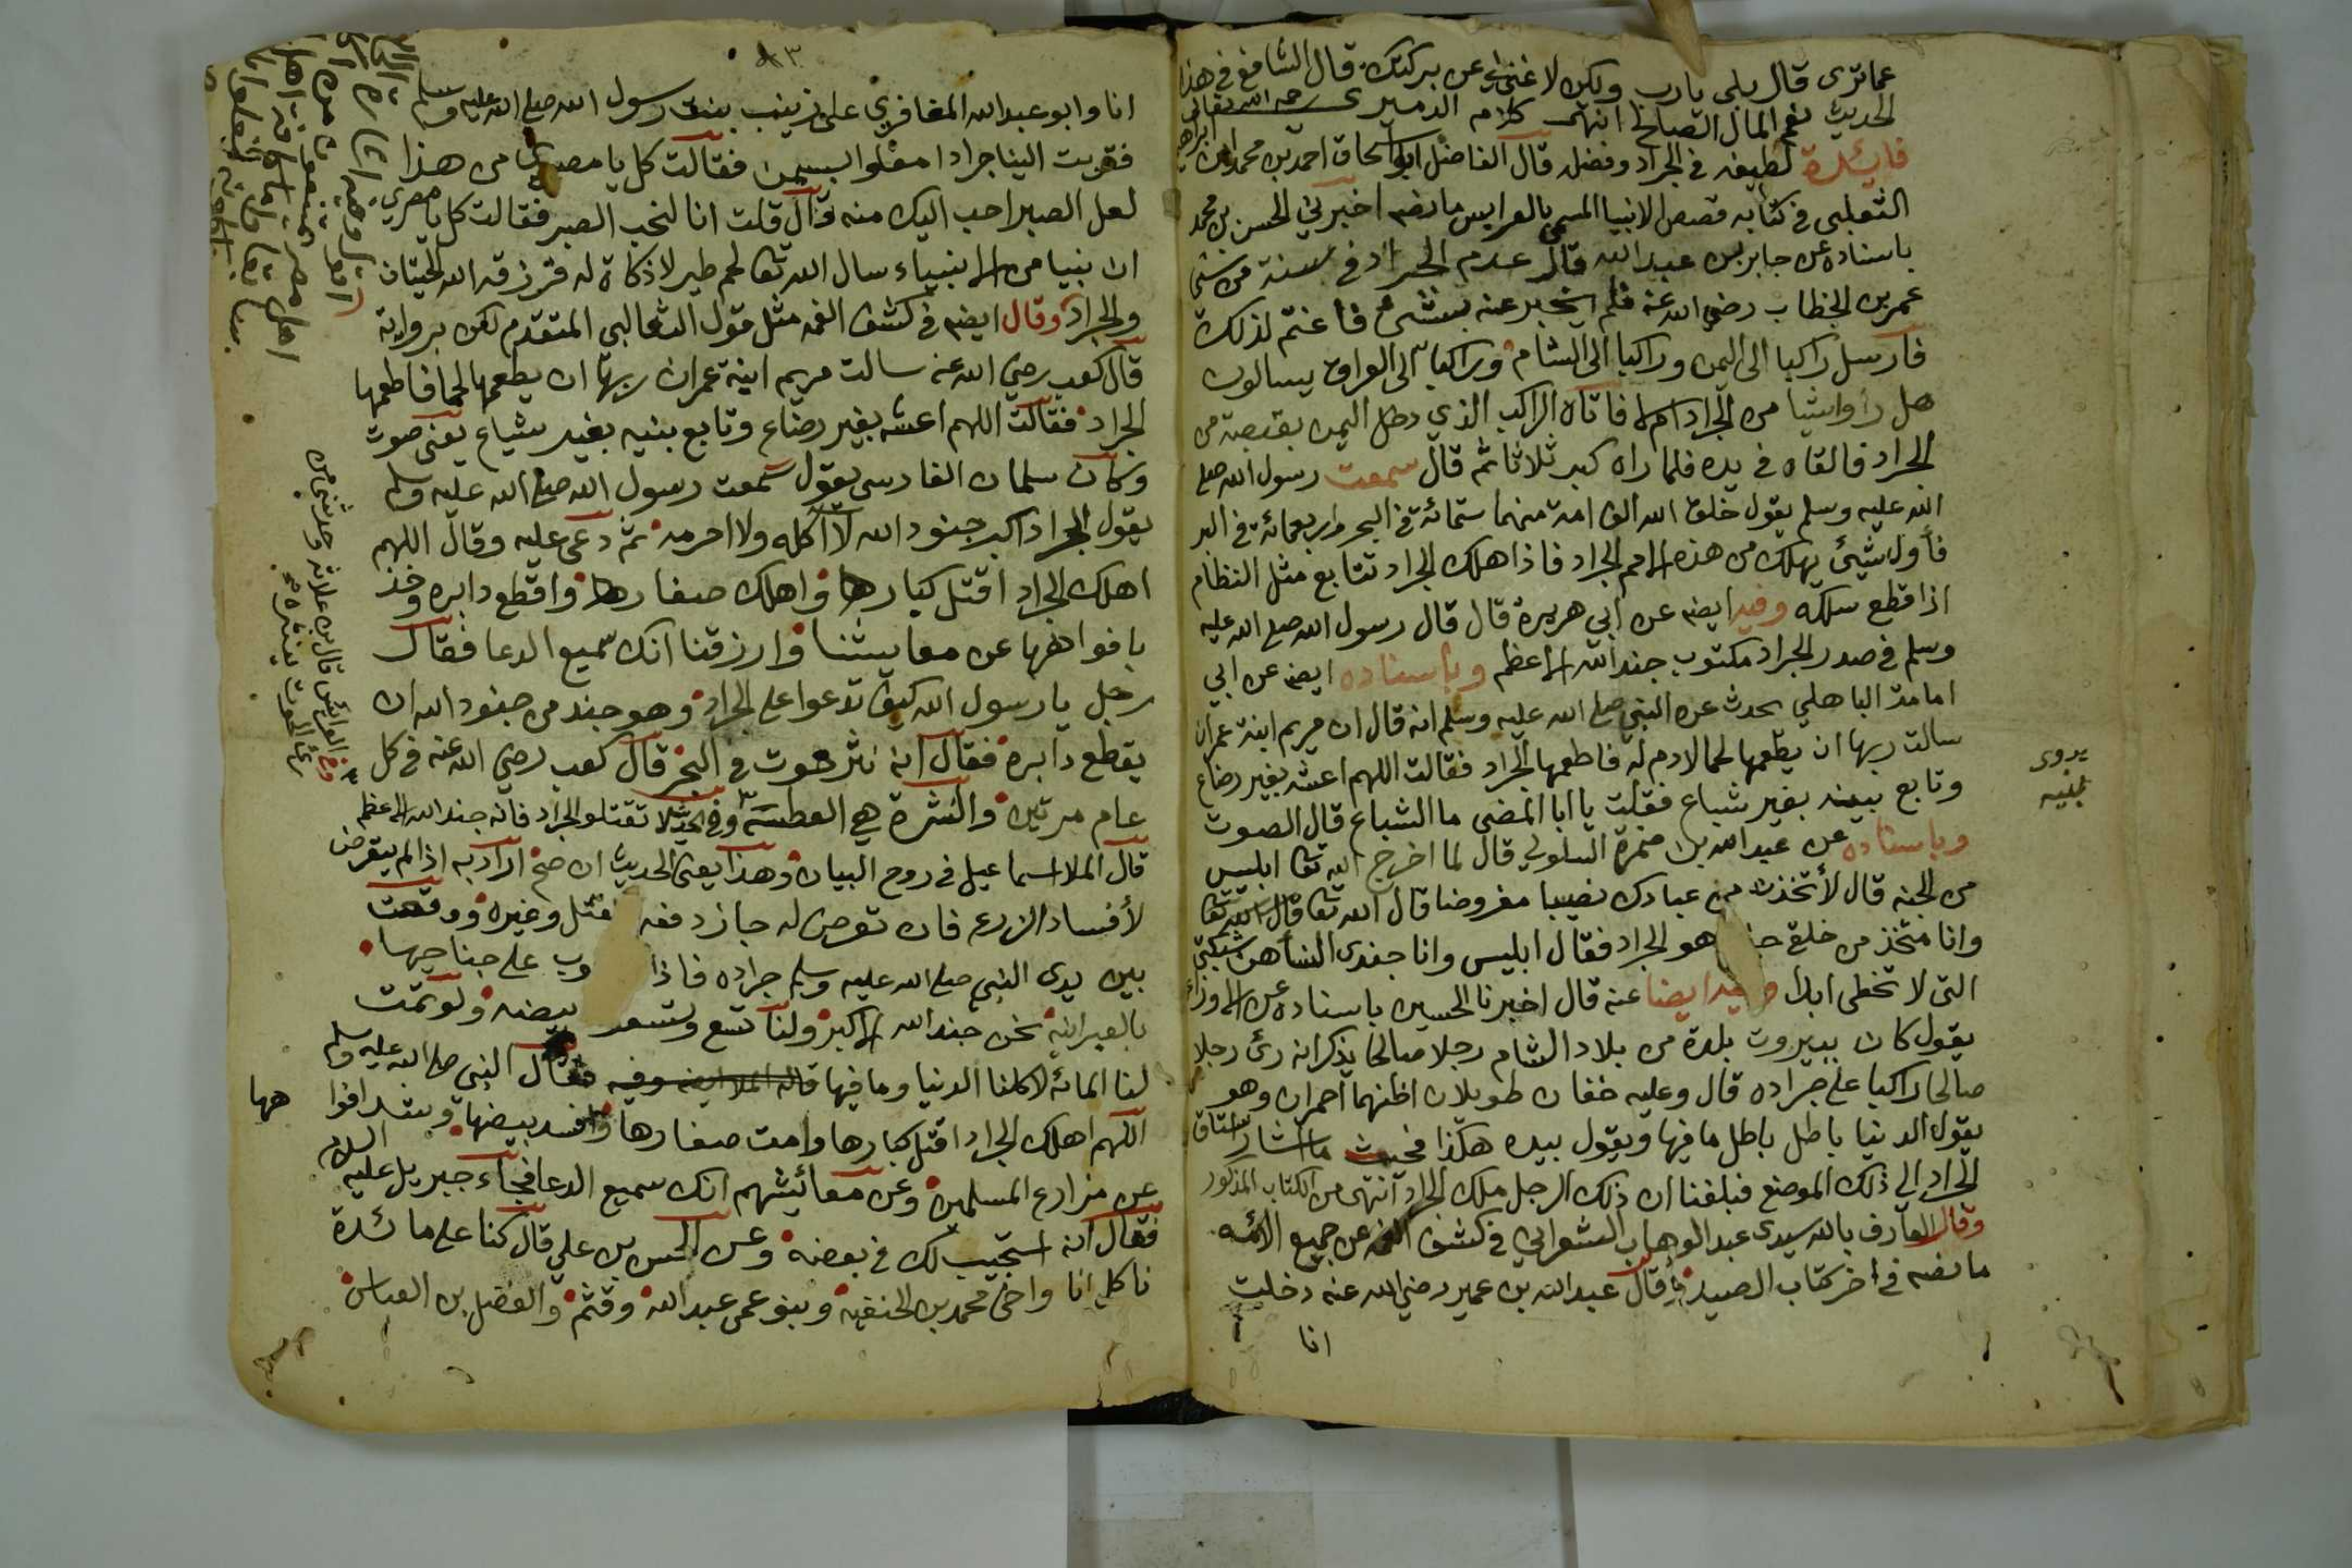 عما ترى قال بلى يا رب ولكن لا غنى لي عن بركتك قال الشافعي في هذا
الحديث نعم المال الصالح انتهى كلام الدميري رحمه الله تعالى
فايدة لطيفه في الجراد وفضله قال الفاضل ابو اسحاق احمد بن محمد بن ابراهيم
الثعلبي في كتابه قصص الانبيا المسمى بالعرايس ما نصه اخبرني الحسن بن محمد
باسناده عن جابر بن عبد الله قال عدم الجراد في سنة من سني
عمر بن الخطاب رضي الله عنه فلم يخبر عنه بشيء فاغتم لذلك
فارسل راكبا الى اليمن وراكبا الى الشام وراكبا الى العراق يسالون
هل راوا شيا من الجراد ام لا فاتاه الراكب الذي دخل اليمن بقبضة من
الجراد فالقاه في يده فلما راه كبر ثلاثا ثم قال سمعت رسول الله صلى
الله عليه وسلم يقول خلق الله الف امة منها ستمائة في البحر واربعمائة في البر
فأول شيئ يهلك من هذه الامم الجراد فاذا هلك الجراد تتابع مثل النظام
اذا قطع سلكه وفيه ايضه عن ابي هريرة قال قال رسول الله صلى الله عليه
وسلم في صدر الجراد مكتوب جند الله الاعظم وباسناده ايضه عن ابي
امامة الباهلي يحدث عن النبي صلى الله عليه وسلم انه قال ان مريم ابنة عمران
سالت ربها ان يطعمها لحما لا دم له فاطعمها الجراد فقالت اللهم اعشه بغير رضاع
وتابع بينه بغير شياع فقلت يا ابا المضي ما الشياع قال الصوت
يروى
بنيه
وباسناده عن عبد الله بن ضمرة السلولي قال لما اخرج الله تعا ابليس
من الجنه قال لأتخذن من عبادك نصيبا مفروضا قال الله تعا
وانا متخذ من خلق هو الجراد فقال ابليس وانا جندي النسا هن شبكتي
التي لا تخطى ابدا وفيه ايضا عنه قال اخبرنا الحسين باسناده عن الاوزاعي
يقول كان ببيروت بلدة من بلاد الشام رجلا صالحا يذكر انه رئ رجلا
صالحا راكبا على جراده قال وعليه خفان طويلان اظنهما احمران وهو
يقول الدنيا باطل باطل ما فيها ويقول بيده هكذا فحيث ما اشار انساق
الجراد الى ذلك الموضع فبلغنا ان ذلك الرجل ملك الجراد انتهى من الكتاب المذكور
وقال العارف بالله سيدي عبد الوهاب الشعراني في كشف الغمه عن جميع الائمه
ما نصه في اخر كتاب الصيد وقال عبد الله بن عمير رضي الله عنه دخلت
انا
٨٣
انا وابو عبد الله المغافري على زينب بنت رسول الله صلى الله عليه وسلم
فقربت الينا جرادا مقلوا بسمن فقالت كل يا مصري من هذا
لعل الصير احب اليك منه قال قلت انا لنحب الصير فقالت كل يا مصري
ان نبيا من الانبياء سال الله تعا لحم طير لا ذكاة له فرزقه الله الحيتان
والجراد وقال ايضه في كشف الغمه مثل قول الثعالبي المتقدم لكن برواية
قال كعب رضي الله عنه سالت مريم ابنة عمران ربها ان يطعمها لحما فاطعمها
الجراد فقالت اللهم اعشه بغير رضاع وتابع بنيه بغير شياع يعني صوت
وكان سلمان الفارسي يقول سمعت رسول الله صلى الله عليه وسلم
يقول الجراد اكبر جنود الله لا آكله ولا احرمه ثم دعى عليه وقال اللهم
اهلك الجراد اقتل كبارها واهلك صغارها واقطع دابره وخذ
بافواهها عن معايشنا وارزقنا انك سميع الدعا فقال
رجل يا رسول الله كيف تدعوا على الجراد وهو جند من جنود الله ان
يقطع دابره فقال انه نثر حوت في البحر قال كعب رضي الله عنه في كل
عام مرتين والنثرة هي العطسة وفي الحديث لا تقتلو الجراد فانه جند الله الاعظم
قال الملا اسماعيل في روح البيان وهذا يعني الحديث ان صح اراد به اذا لم يتعرض
لأفساد الزرع فان تعرض له جاز دفعه بقتل وغيره ووقعت
بين يدي النبي صلى الله عليه وسلم جراده فاذا على جناحها
بالعبرانية نحن جند الله الاكبر ولنا تسع وتسعون بيضه ولو تمت
لنا المائه لاكلنا الدنيا وما فيها فقال النبي صلى الله عليه وسلم
اللهم اهلك الجراد اقتل كبارها وامت صغارها وافسد بيضها وسد افوا
هها
عن مزارع المسلمين وعن معائيشهم انك سميع الدعا فجاء جبريل عليه السلام
فقال انه استجيب لك في بعضه وعن الحسن بن علي قال كنا على مائدة
ناكل انا واخي محمد بن الحنفية وبنو عمي عبد الله وقثم والفضل بن العباس
وفي العرائس قال بن علاثه وحدثني من
رئ الحوت ينثره